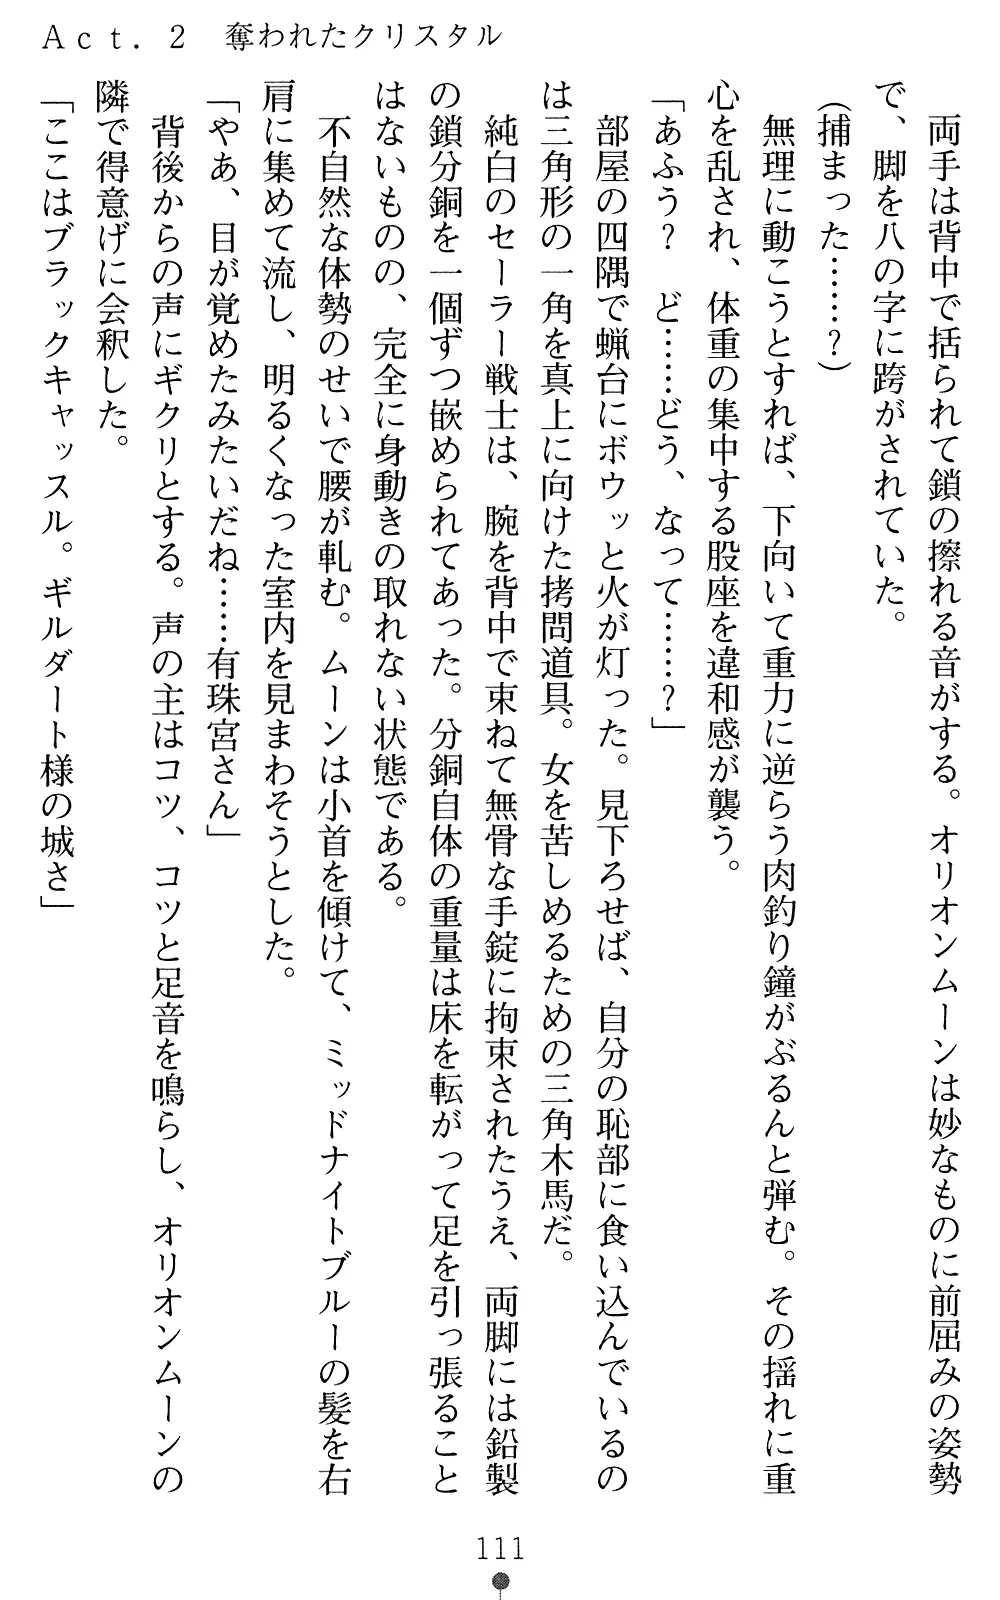 Act. 2　奪われたクリスタル
　両手は背中で括られて鎖の擦れる音がする。オリオンムーンは妙なものに前屈みの姿勢
で、脚を八の字に跨がされていた。
（捕まった……？）
　無理に動こうとすれば、下向いて重力に逆らう肉釣り鐘がぶるんと弾む。その揺れに重
心を乱され、体重の集中する股座を違和感が襲う。
「あふう？　ど……どう、なって……？」
　部屋の四隅で蝋台にボウッと火が灯った。見下ろせば、自分の恥部に食い込んでいるの
は三角形の一角を真上に向けた拷問道具。女を苦しめるための三角木馬だ。
　純白のセーラー戦士は、腕を背中で束ねて無骨な手錠に拘束されたうえ、両脚には鉛製
の鎖分銅を一個ずつ嵌められてあった。分銅自体の重量は床を転がって足を引っ張ること
はないものの、完全に身動きの取れない状態である。
　不自然な体勢のせいで腰が軋む。ムーンは小首を傾けて、ミッドナイトブルーの髪を右
肩に集めて流し、明るくなった室内を見まわそうとした。
「やあ、目が覚めたみたいだね……有珠宮さん」
　背後からの声にギクリとする。声の主はコツ、コツと足音を鳴らし、オリオンムーンの
隣で得意げに会釈した。
「ここはブラックキャッスル。ギルダート様の城さ」
111